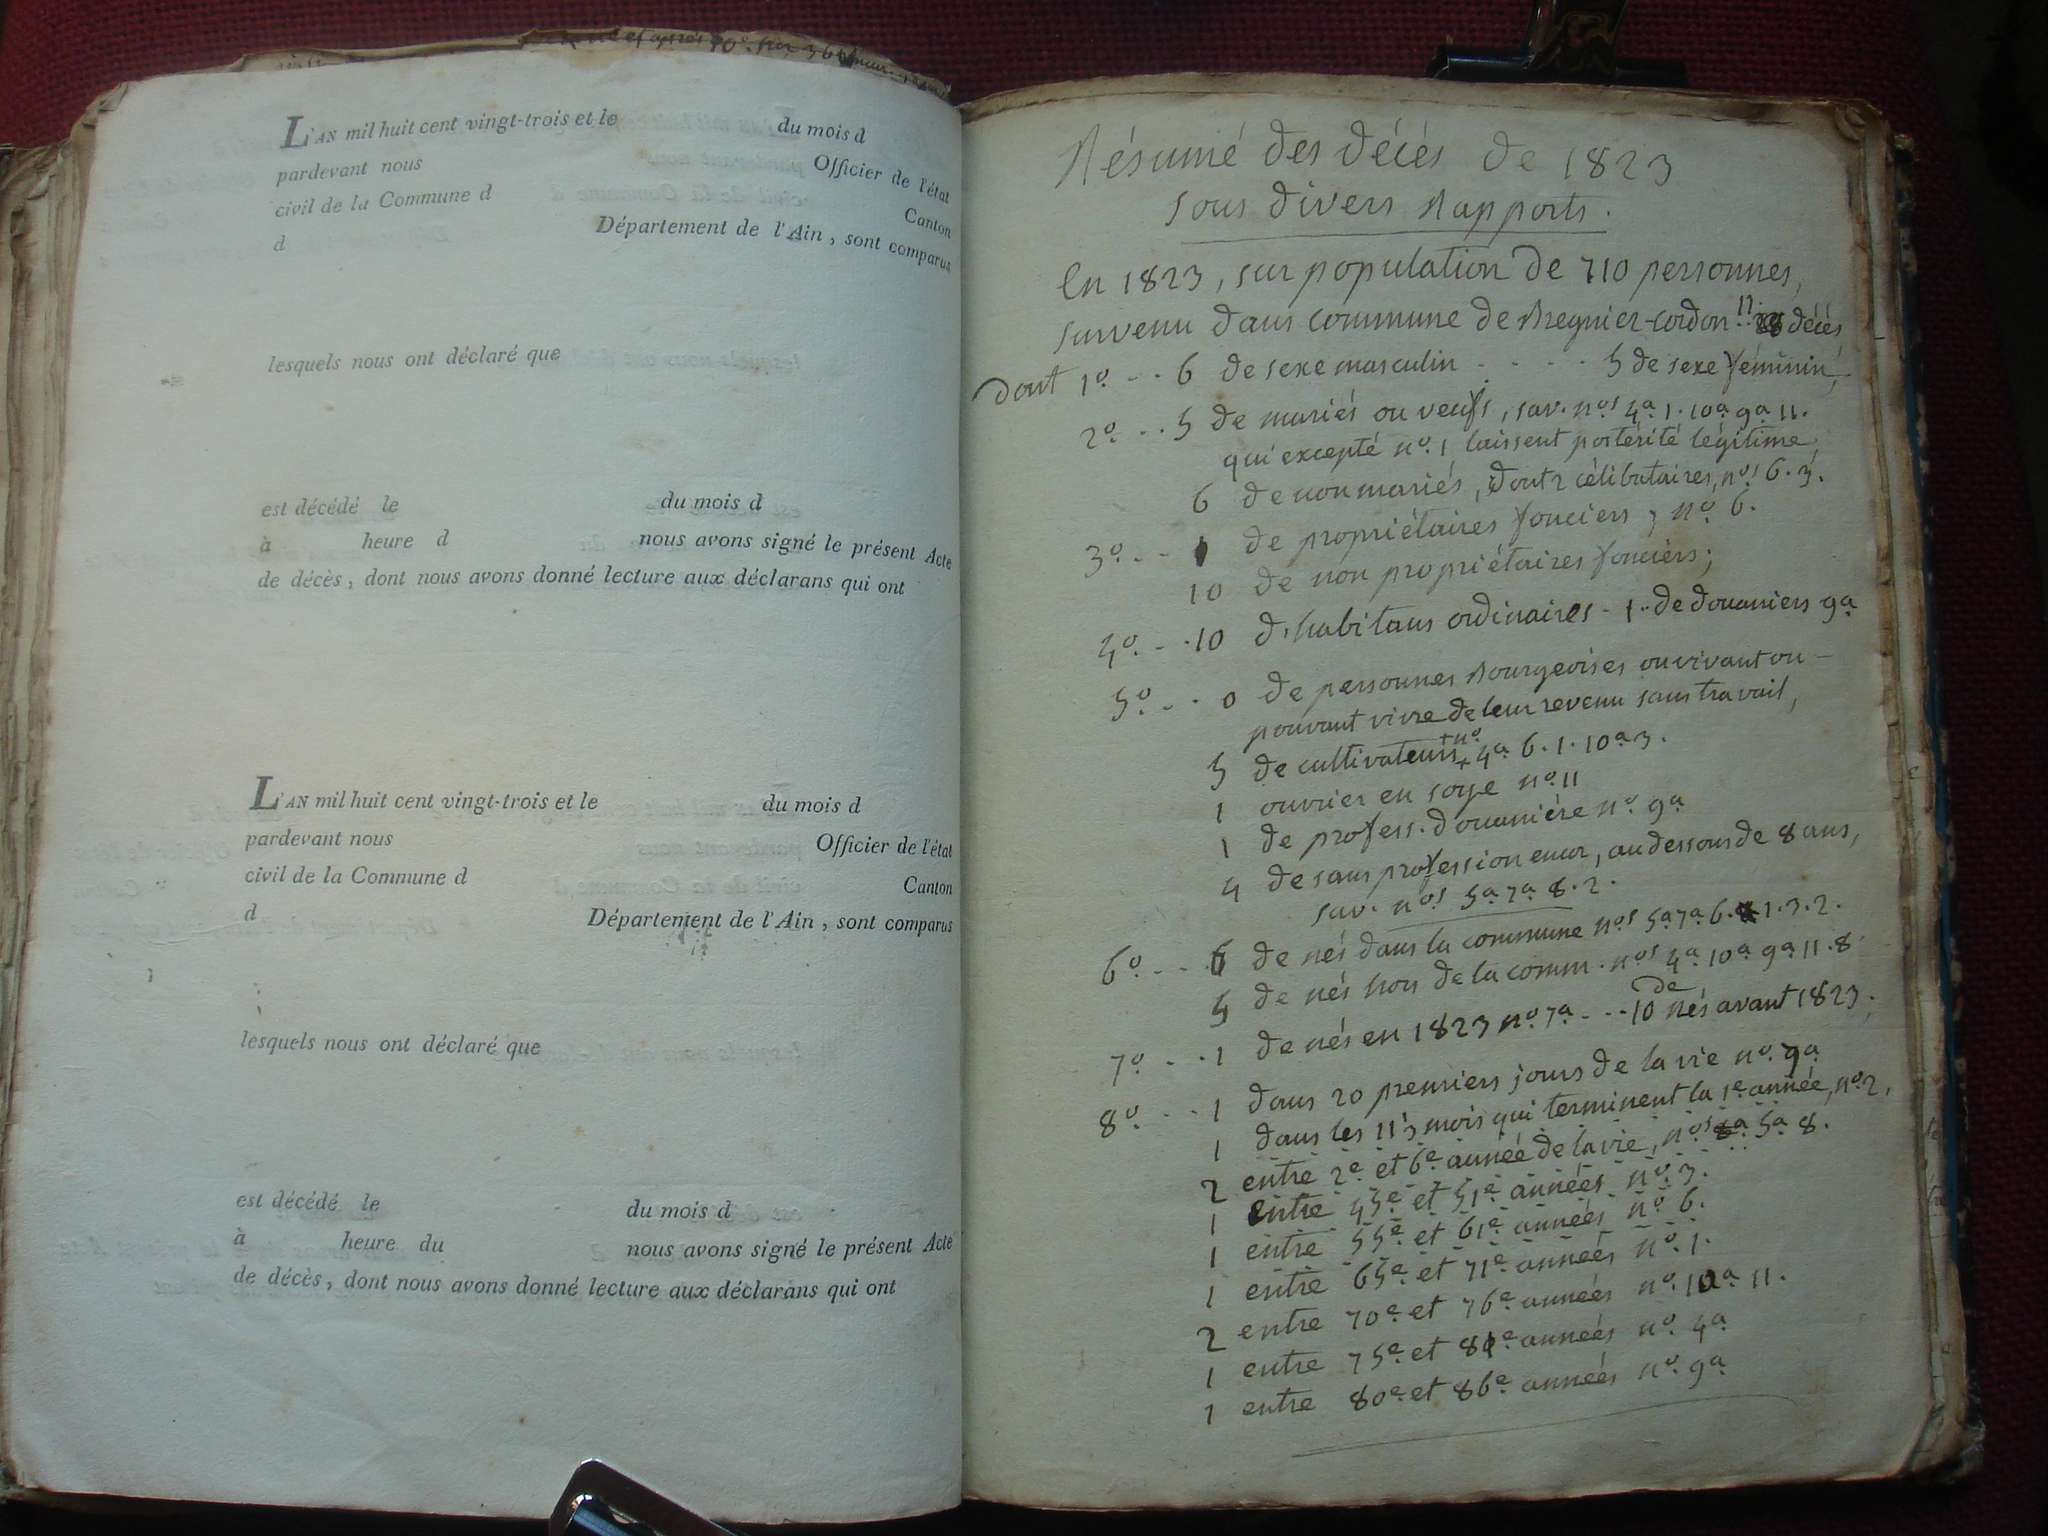 L'AN mil huit cent vingt-trois et le du mois d
pardevant nous Officier de l'état
civil de la Commune d Canton
d Département de l'Ain, sont comparus
lesquels nous ont déclaré que
est décédé le du mois d
à heure d nous avons signé le présent Acte
de décès, dont nous avons donné lecture aux déclarans qui ont
L'AN mil huit cent vingt-trois et le du mois d
pardevant nous Officier de l'état
civil de la Commune d Canton
d Département de l'Ain, sont comparus
lesquels nous ont déclaré que
est décédé le du mois d
à heure du nous avons signé le présent Acte
de décès, dont nous avons donné lecture aux déclarans qui ont
Résumé des décés de 1823
sous divers Rapports.
En 1823, sur population de 710 personnes,
survenu dans commune de Bregnier-cordon 11 décés
dont 1º -- 6 de sexe masculin - - - - 5 de sexe féminin,
2º -- 5 de mariés ou veufs, sav. nos 4a 1. 10a 9a 11.
qui excepté nº 1 laissent postérité légitime
6 de non mariés, dont 2 célibataires, nos 6. 3.
3º -- 1 de propriétaires fonciers, nº 6.
10 de non propriétaires fonciers;
4º -- 10 d'habitans ordinaires - 1.. de douaniers 9a
5º -- 0 de personnes Bourgeoises ou vivant ou -
pouvant vivre de leur revenu sans travail,
5 de cultivateurs nº 4a 6. 1. 10a 3.
1 ouvrier en soye nº 11
1 de profess. douanière nº 9a
4 de sans profession encor, au dessous de 8 ans,
sav. nos 5a 7a 8. 2.
6º -- 6 de nés dans la commune nos 5a 7a 6. 1. 3. 2.
5 de nés hors de la comm. nos 4a 10a 9a 11. 8.
7º -- 1 de nés en 1823 nº 7a - - - 10 de nés avant 1823.
8º -- 1 dans 20 premiers jours de la vie nº 7a
1 dans les 11 mois qui terminent la 1e année, nº 2.
2 entre 2e et 6e année de la vie, nos 5a 8.
1 entre 45e et 51e années nº 3.
1 entre 55e et 61e années nº 6.
1 entre 65e et 71e années nº 1.
2 entre 70e et 76e années nº 10a 11.
1 entre 75e et 81e années nº 4a
1 entre 80e et 86e années nº 9a